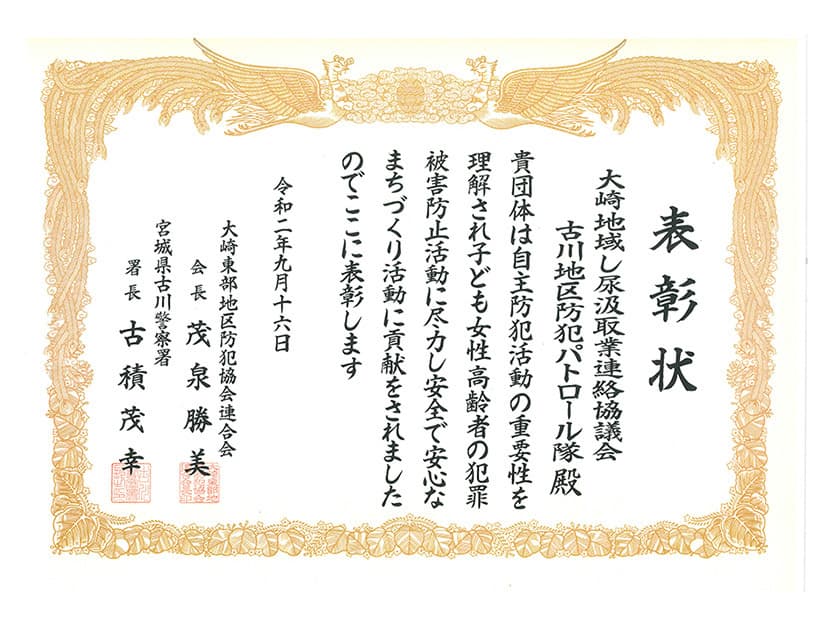 表彰状
大崎地域し尿汲取業連絡協議会
古川地区防犯パトロール隊 殿
貴団体は自主防犯活動の重要性を
理解され子ども女性高齢者の犯罪
被害防止活動に尽力し安全で安心な
まちづくり活動に貢献をされました
のでここに表彰します
令和二年九月十六日
大崎東部地区防犯協会連合会
会長 茂泉勝美
宮城県古川警察署
署長 古積茂幸